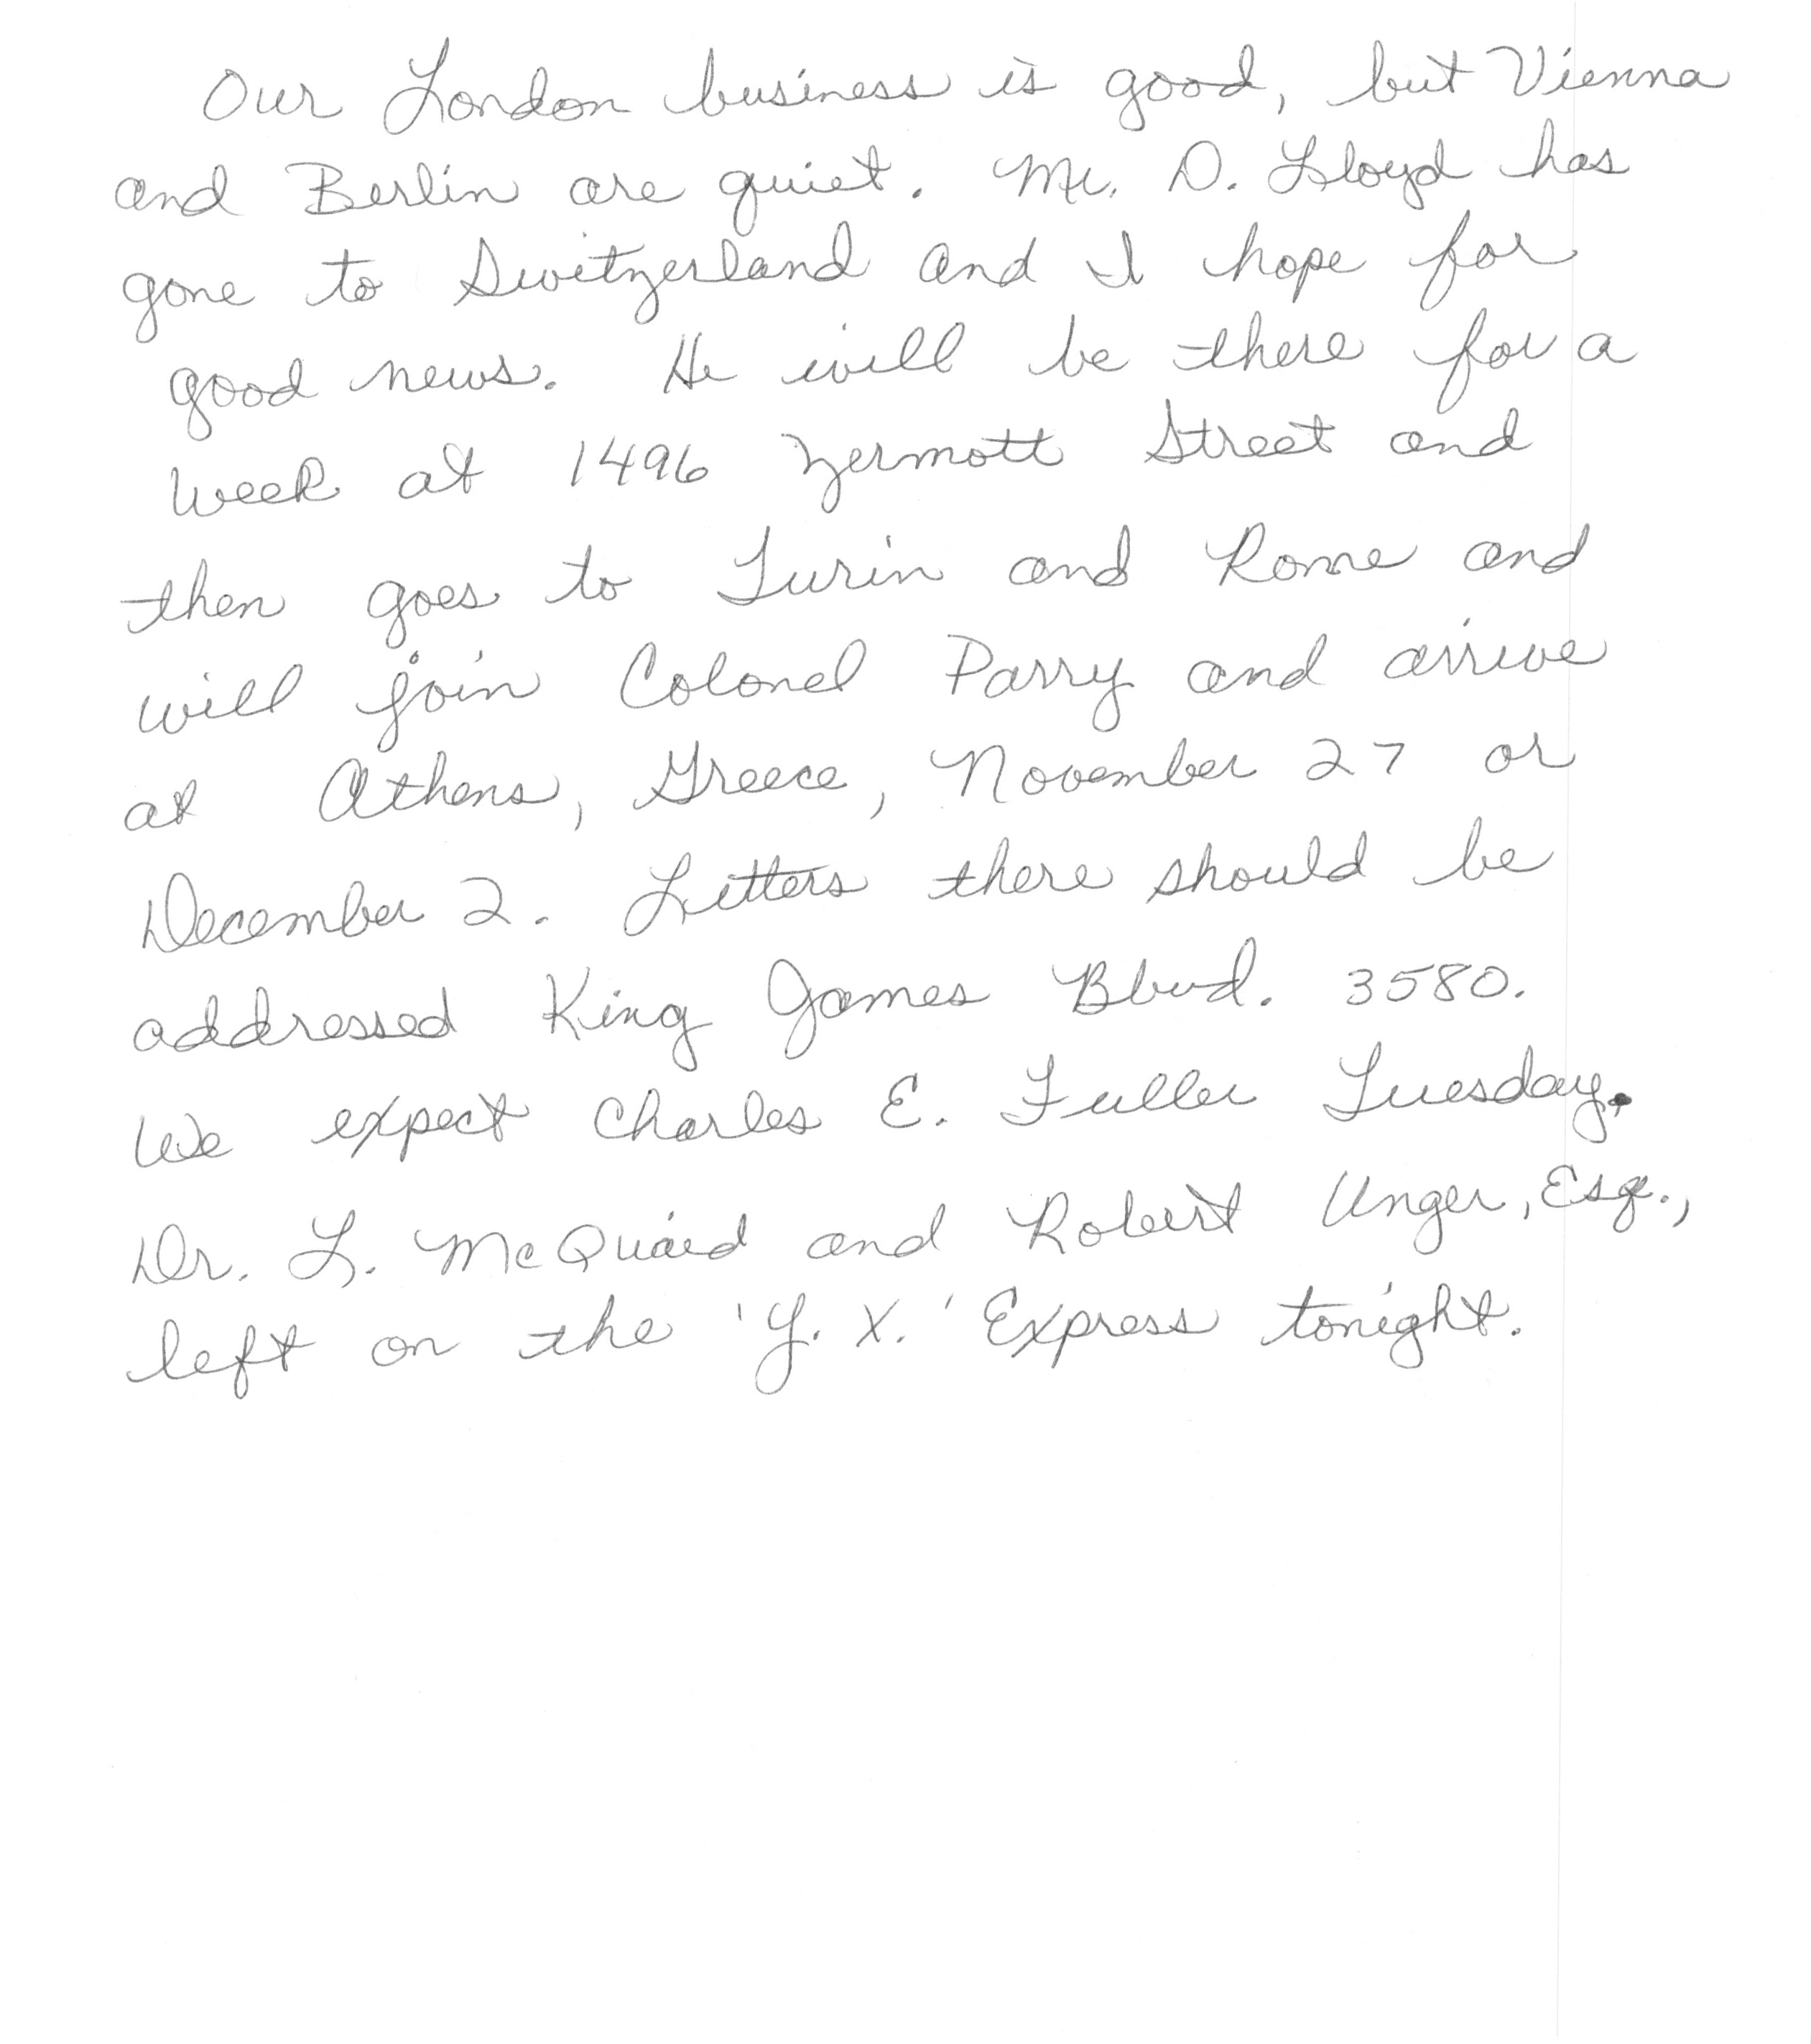 Our London business is good, but Vienna
and Berlin are quiet. Mr. D. Lloyd has
gone to Switzerland and I hope for
good news. He will be there for a
week at 1496 Zermott Street and
then goes to Turin and Rome and
will join Colonel Parry and arrive
at Athens, Greece, November 27 or
December 2. Letters there should be
addressed King James Blvd. 3580.
We expect Charles E. Fuller Tuesday.
Dr. L. McQuaid and Robert Unger, Esq.,
left on the 'Y. X.' Express tonight.